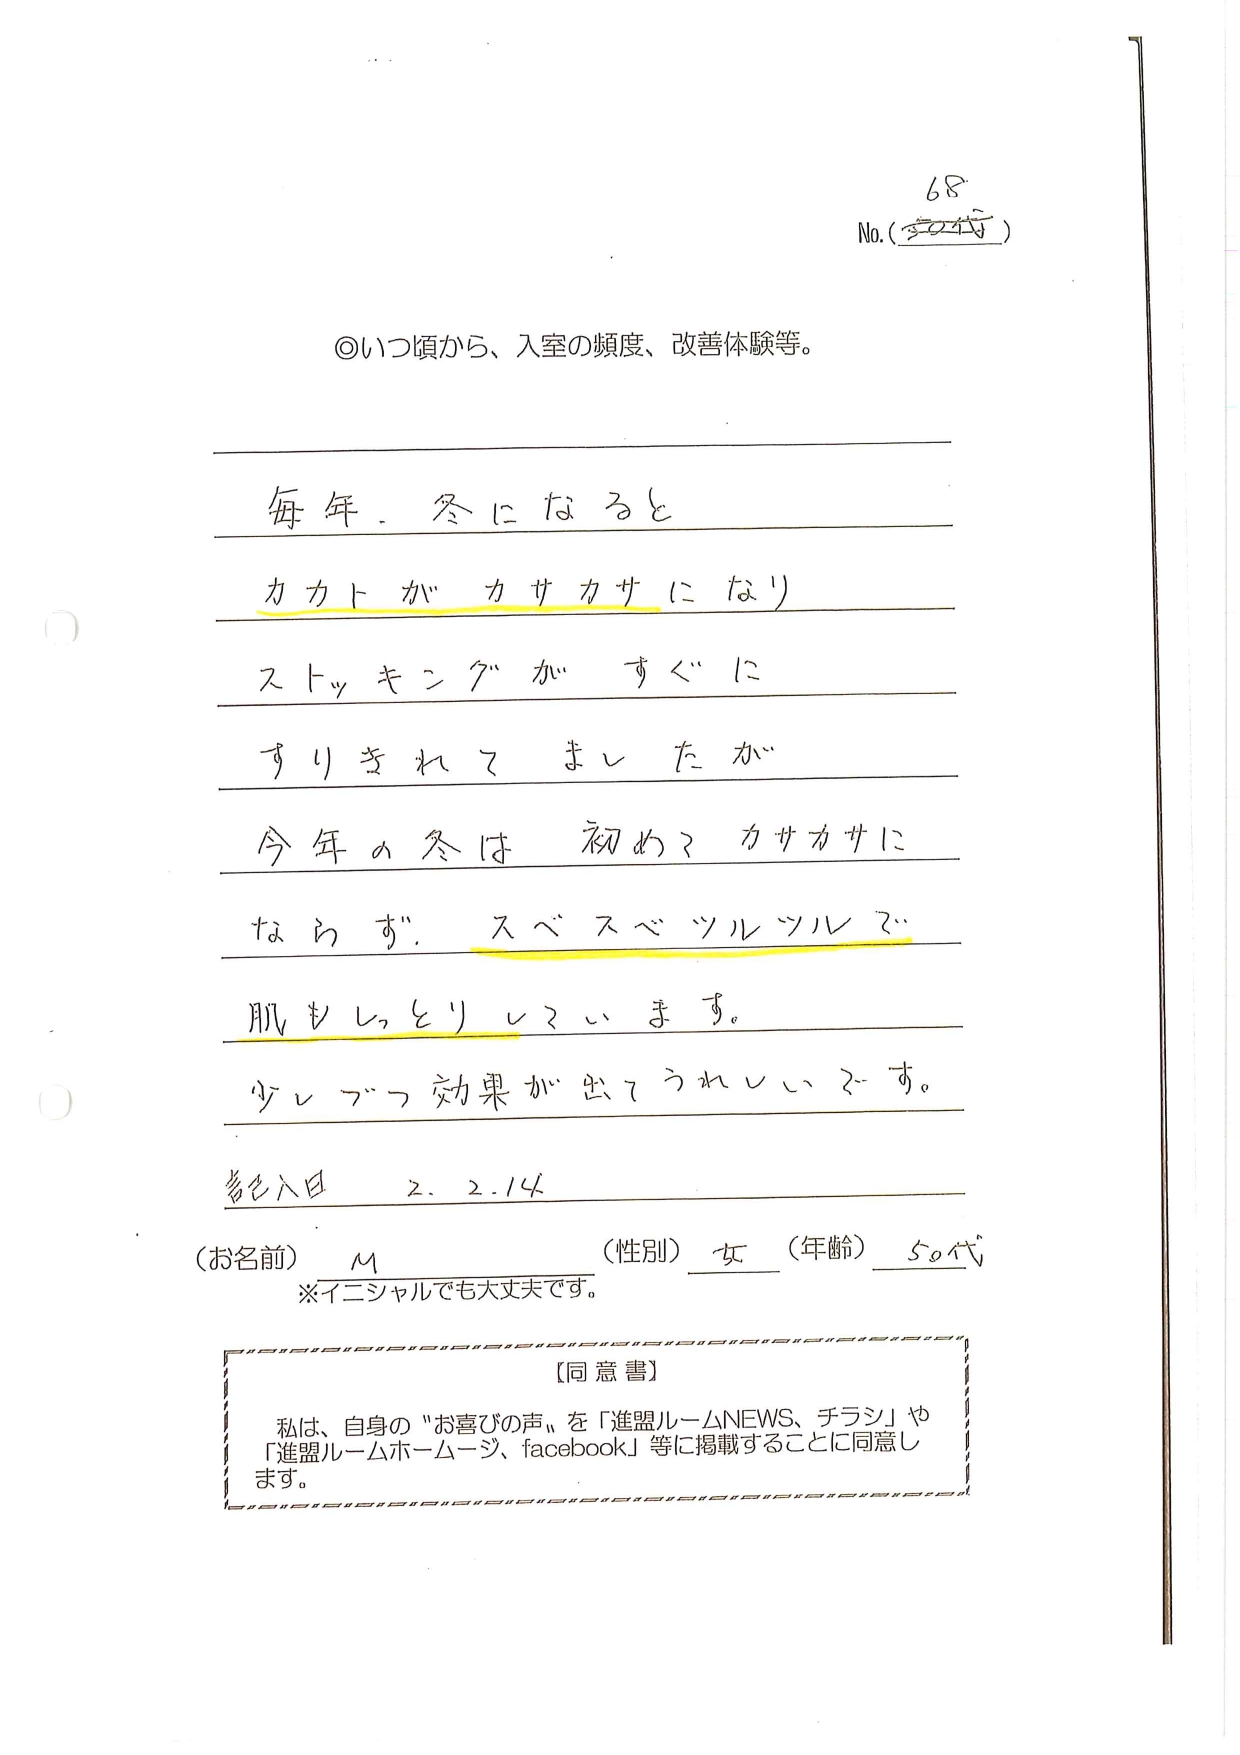 68
No.(50代)
◎いつ頃から、入室の頻度、改善体験等。
毎年.冬になると
カカトが カサカサになり
ストッキングが すぐに
すりきれて ましたが
今年の冬は 初めて カサカサに
ならず. スベスベツルツルで
肌もしっとりしています。
少しづつ効果が出てうれしいです。
記入日 2.2.14
(お名前) M (性別) 女 (年齢) 50代
※イニシャルでも大丈夫です。
【同意書】
私は、自身の〝お喜びの声〟を「進盟ルームNEWS、チラシ」や
「進盟ルームホームージ、facebook」等に掲載することに同意し
ます。